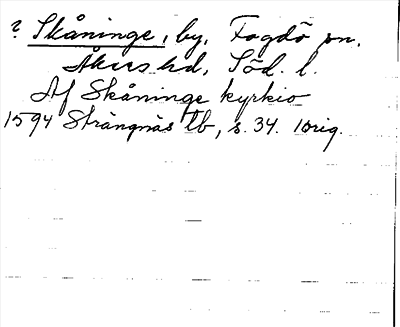 ? Skåninge, by, Fogdö sn,
Åkers hd, Söd. l.
Af Skåninge kyrkio
1594 Strängnäs tb, s. 34. 1 orig.